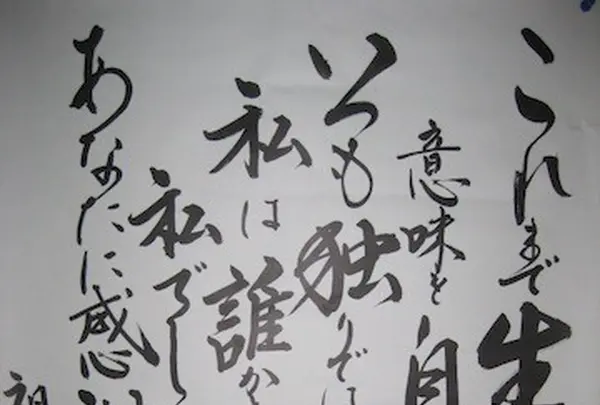 これまで生
意味を自
いつも独りでは
私は誰か
私でし
あなたに感謝